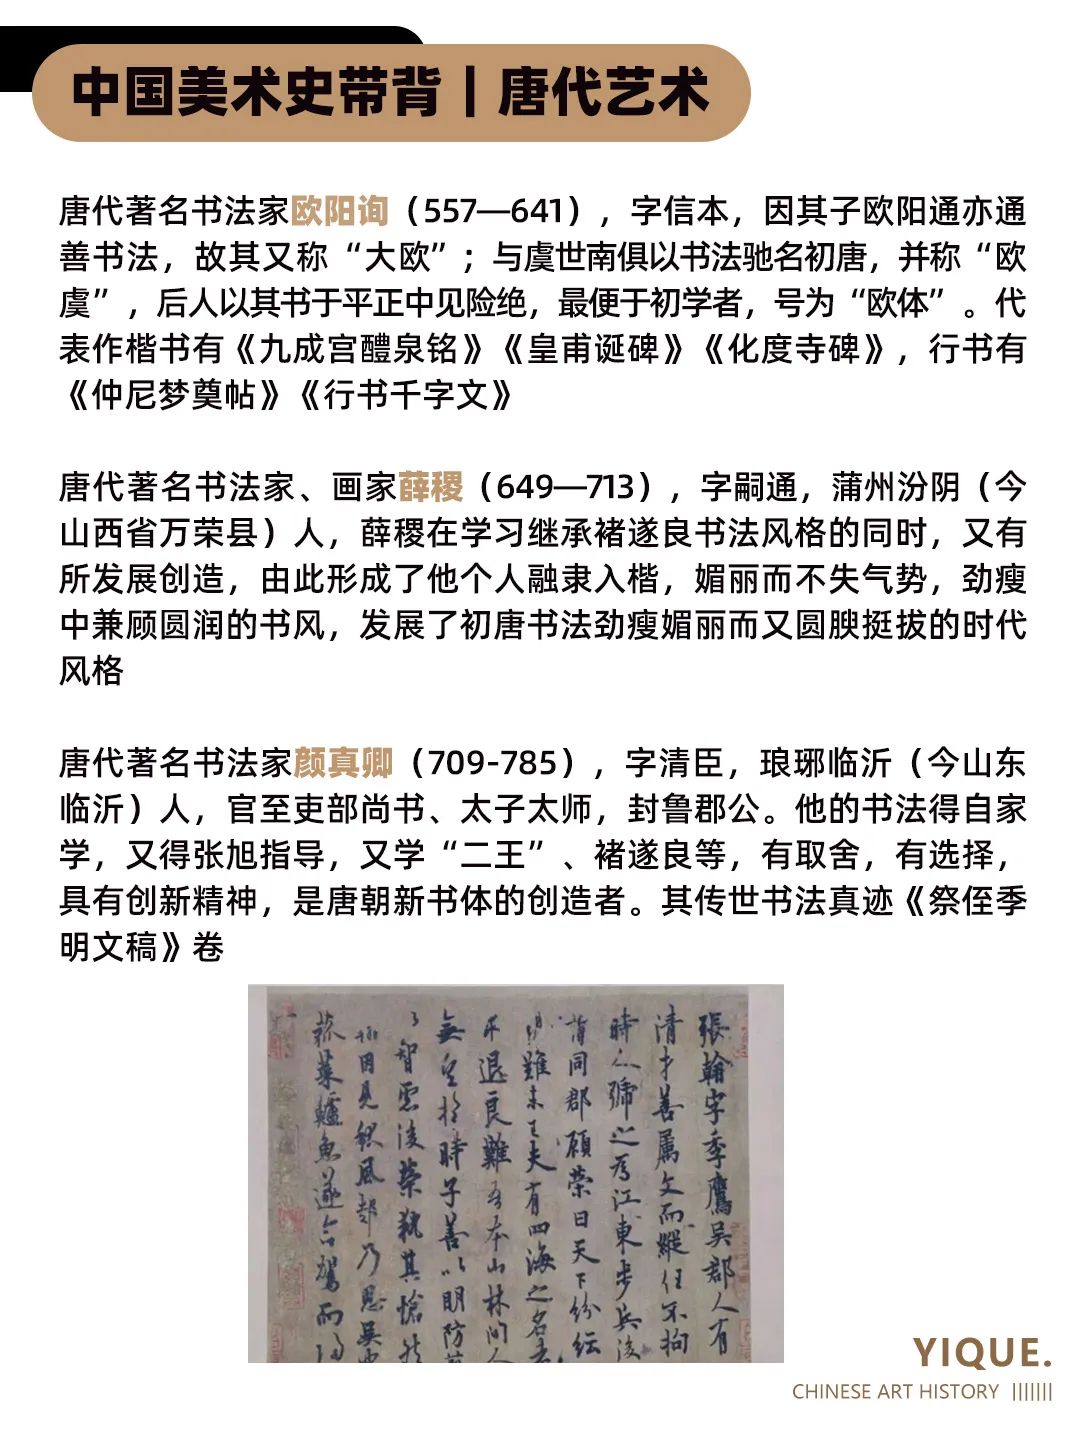 中国美术史带背｜唐代艺术
唐代著名书法家欧阳询（557—641），字信本，因其子欧阳通亦通
善书法，故其又称“大欧”；与虞世南俱以书法驰名初唐，并称“欧
虞”，后人以其书于平正中见险绝，最便于初学者，号为“欧体”。代
表作楷书有《九成宫醴泉铭》《皇甫诞碑》《化度寺碑》，行书有
《仲尼梦奠帖》《行书千字文》
唐代著名书法家、画家薛稷（649—713），字嗣通，蒲州汾阴（今
山西省万荣县）人，薛稷在学习继承褚遂良书法风格的同时，又有
所发展创造，由此形成了他个人融隶入楷，媚丽而不失气势，劲瘦
中兼顾圆润的书风，发展了初唐书法劲瘦媚丽而又圆腴挺拔的时代
风格
唐代著名书法家颜真卿（709-785），字清臣，琅琊临沂（今山东
临沂）人，官至吏部尚书、太子太师，封鲁郡公。他的书法得自家
学，又得张旭指导，又学“二王”、褚遂良等，有取舍，有选择，
具有创新精神，是唐朝新书体的创造者。其传世书法真迹《祭侄季
明文稿》卷
張翰字季鷹吳郡人有
清才善属文而縱任不拘
時人號之為江東步兵後
同郡顧榮曰天下紛紜
難未已夫有四海之名者
求退良難吾本山林間人
無望於時子善以明防前
智慮後榮執其愴然
因見秋風起乃思吳中
菰菜鱸魚遂命駕而歸
YIQUE.
CHINESE ART HISTORY